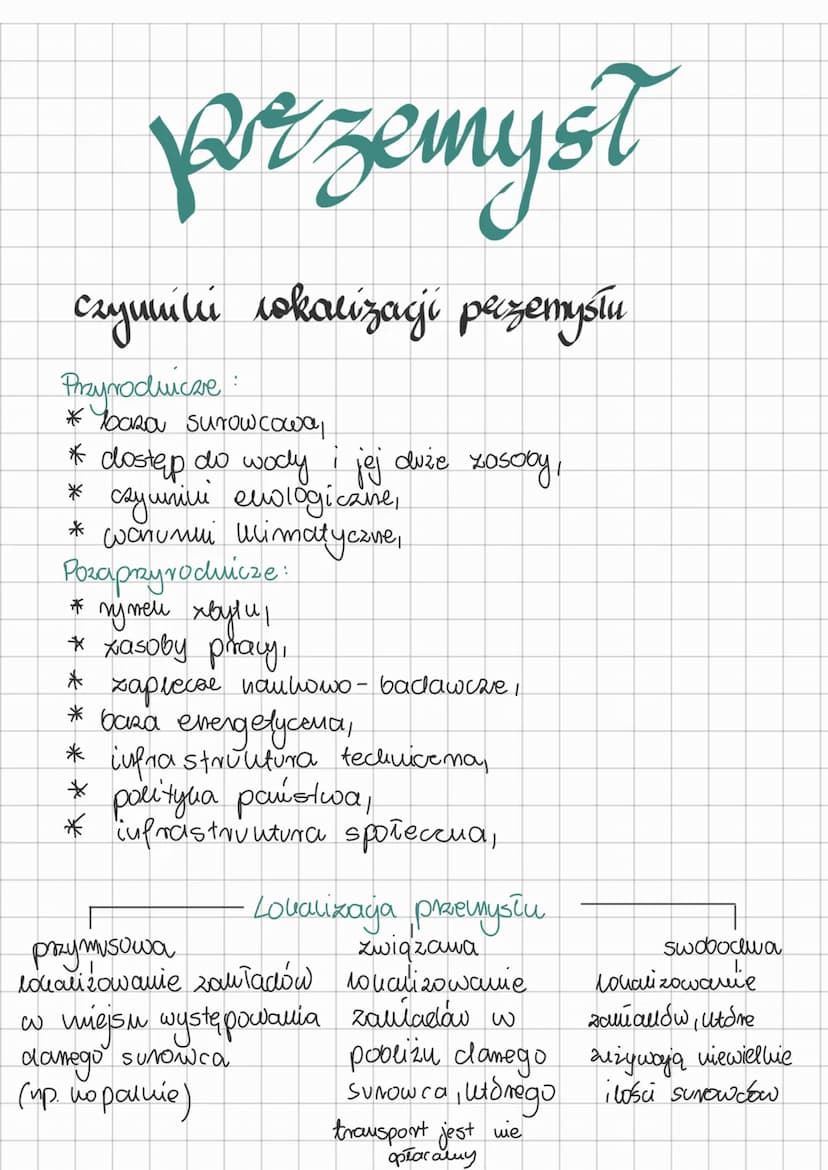 przemysł
czynniki lokalizacji przemysłu
Przyrodnicze:
* baza surowcowa,
* dostęp do wody i jej duże zasoby,
* czynniki ekologiczne,
* warunki klimatyczne,
Pozaprzyrodnicze:
* rynek zbytu,
* zasoby pracy,
* zaplecze naukowo-badawcze,
* baza energetyczna,
* infrastruktura techniczna,
* polityka państwa,
* infrastruktura społeczna,
Lokalizacja przemysłu
przymusowa
lokalizowanie zakładów
w miejscu występowania
danego surowca
(np. kopalnie)
związana
lokalizowanie
zakładów w
pobliżu danego
surowca, którego
transport jest nie
opłacalny
swobodna
lokalizowanie
zakładów, które
zużywają niewielkie
ilości surowców